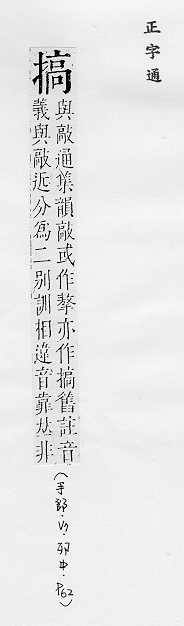 正字通
搞
與敲通集韻敲或作摮亦作搞舊註音
義與敲近分爲二别訓相違音靠𠀤非
(手部·卯中·P62)